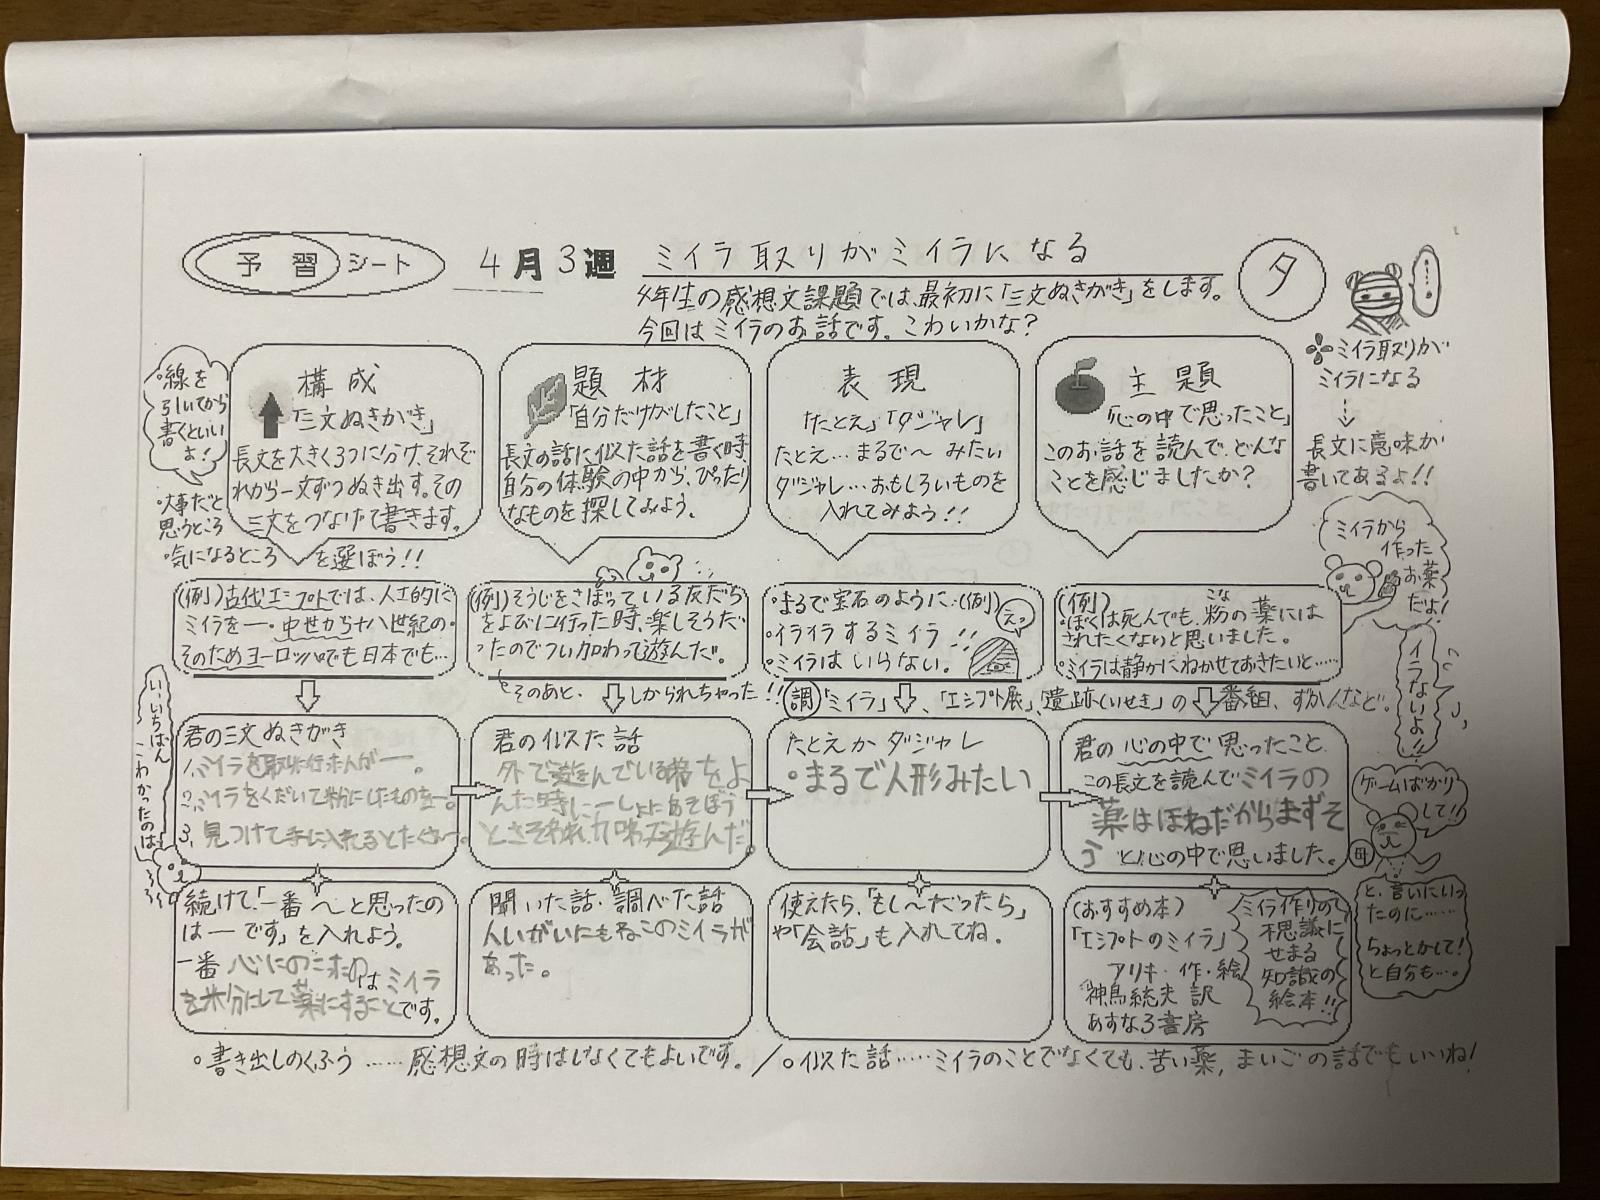 予習シート
4月3週
ミイラ取りがミイラになる
タ
4年生の感想文課題では、最初に「三文ぬきがき」をします。
今回はミイラのお話です。こわいかな?
・線を
引いてから
書くといい
よ!
・大事だと
思うところ
・気になるところ を選ぼう!!
構成
「三文ぬきがき」
長文を大きく3つに分け、それぞ
れから一文ずつぬき出す。その
三文をつなげて書きます。
題材
「自分だけがしたこと」
長文の話に似た話を書く時、
自分の体験の中から、ぴったり
なものを探してみよう。
表現
「たとえ」「ダジャレ」
たとえ…まるで〜みたい
ダジャレ…おもしろいものを
入れてみよう!!
主題
「心の中で思ったこと」
このお話を読んで、どんな
ことを感じましたか?
ミイラ取りが
ミイラになる
長文に意味が
書いてあるよ!!
ミイラから
作った
お薬
だよ!
(例)古代エジプトでは、人工的に
ミイラを一・中世から十八世紀の・
そのためヨーロッパでも日本でも…
(例)そうじをさぼっている友だち
をよびに行った時、楽しそうだ
ったのでつい加わって遊んだ。
そのあと、しかられちゃった!!
・まるで宝石のように:(例)
・イライラするミイラ!!
・ミイラはいらない。
えっ
(例)
・ぼくは死んでも、粉の薬には
こな
されたくないと思いました。
・ミイラは静かにねかせておきたいと……
イラないよ!!
調「ミイラ」、「エジプト展」、「遺跡(いせき)」の番組、ずかんなど。
いちばん
こわかったのは
君の三文ぬきがき
1、ミイラを取りに行った人が一。
2、ミイラをくだいて粉にしたものを一。
3、見つけて手に入れるとたく
君の似た話
外で遊んでいる
んだ時に一しょにあそぼう
とさそわれ、加わって遊んだ。
たとえかダジャレ
・まるで人形みたい
君の心の中で思ったこと
この長文を読んでミイラの
薬はほねだからまずそ
うと心の中で思いました。
ゲームばかり
して!!
母
と、言いにいっ
たのに……
ちょっとかして!
と自分も…。
続けて、「一番〜と思ったの
は一です」を入れよう。
一番心にのこったのはミイラ
を粉にして薬にすることです。
聞いた話・調べた話
人いがいにもねこのミイラが
あった。
使えたら、「もし〜だったら」
や「会話」も入れてね。
(おすすめ本)
「エジプトのミイラ」
アリキ・作・絵
神鳥統夫 訳
あすなろ書房
ミイラ作りの
不思議に
せまる
知識の
絵本!!
○書き出しのくふう……感想文の時はしなくてもよいです。/○似た話……ミイラのことでなくても、苦い薬、まいごの話でもいいね!